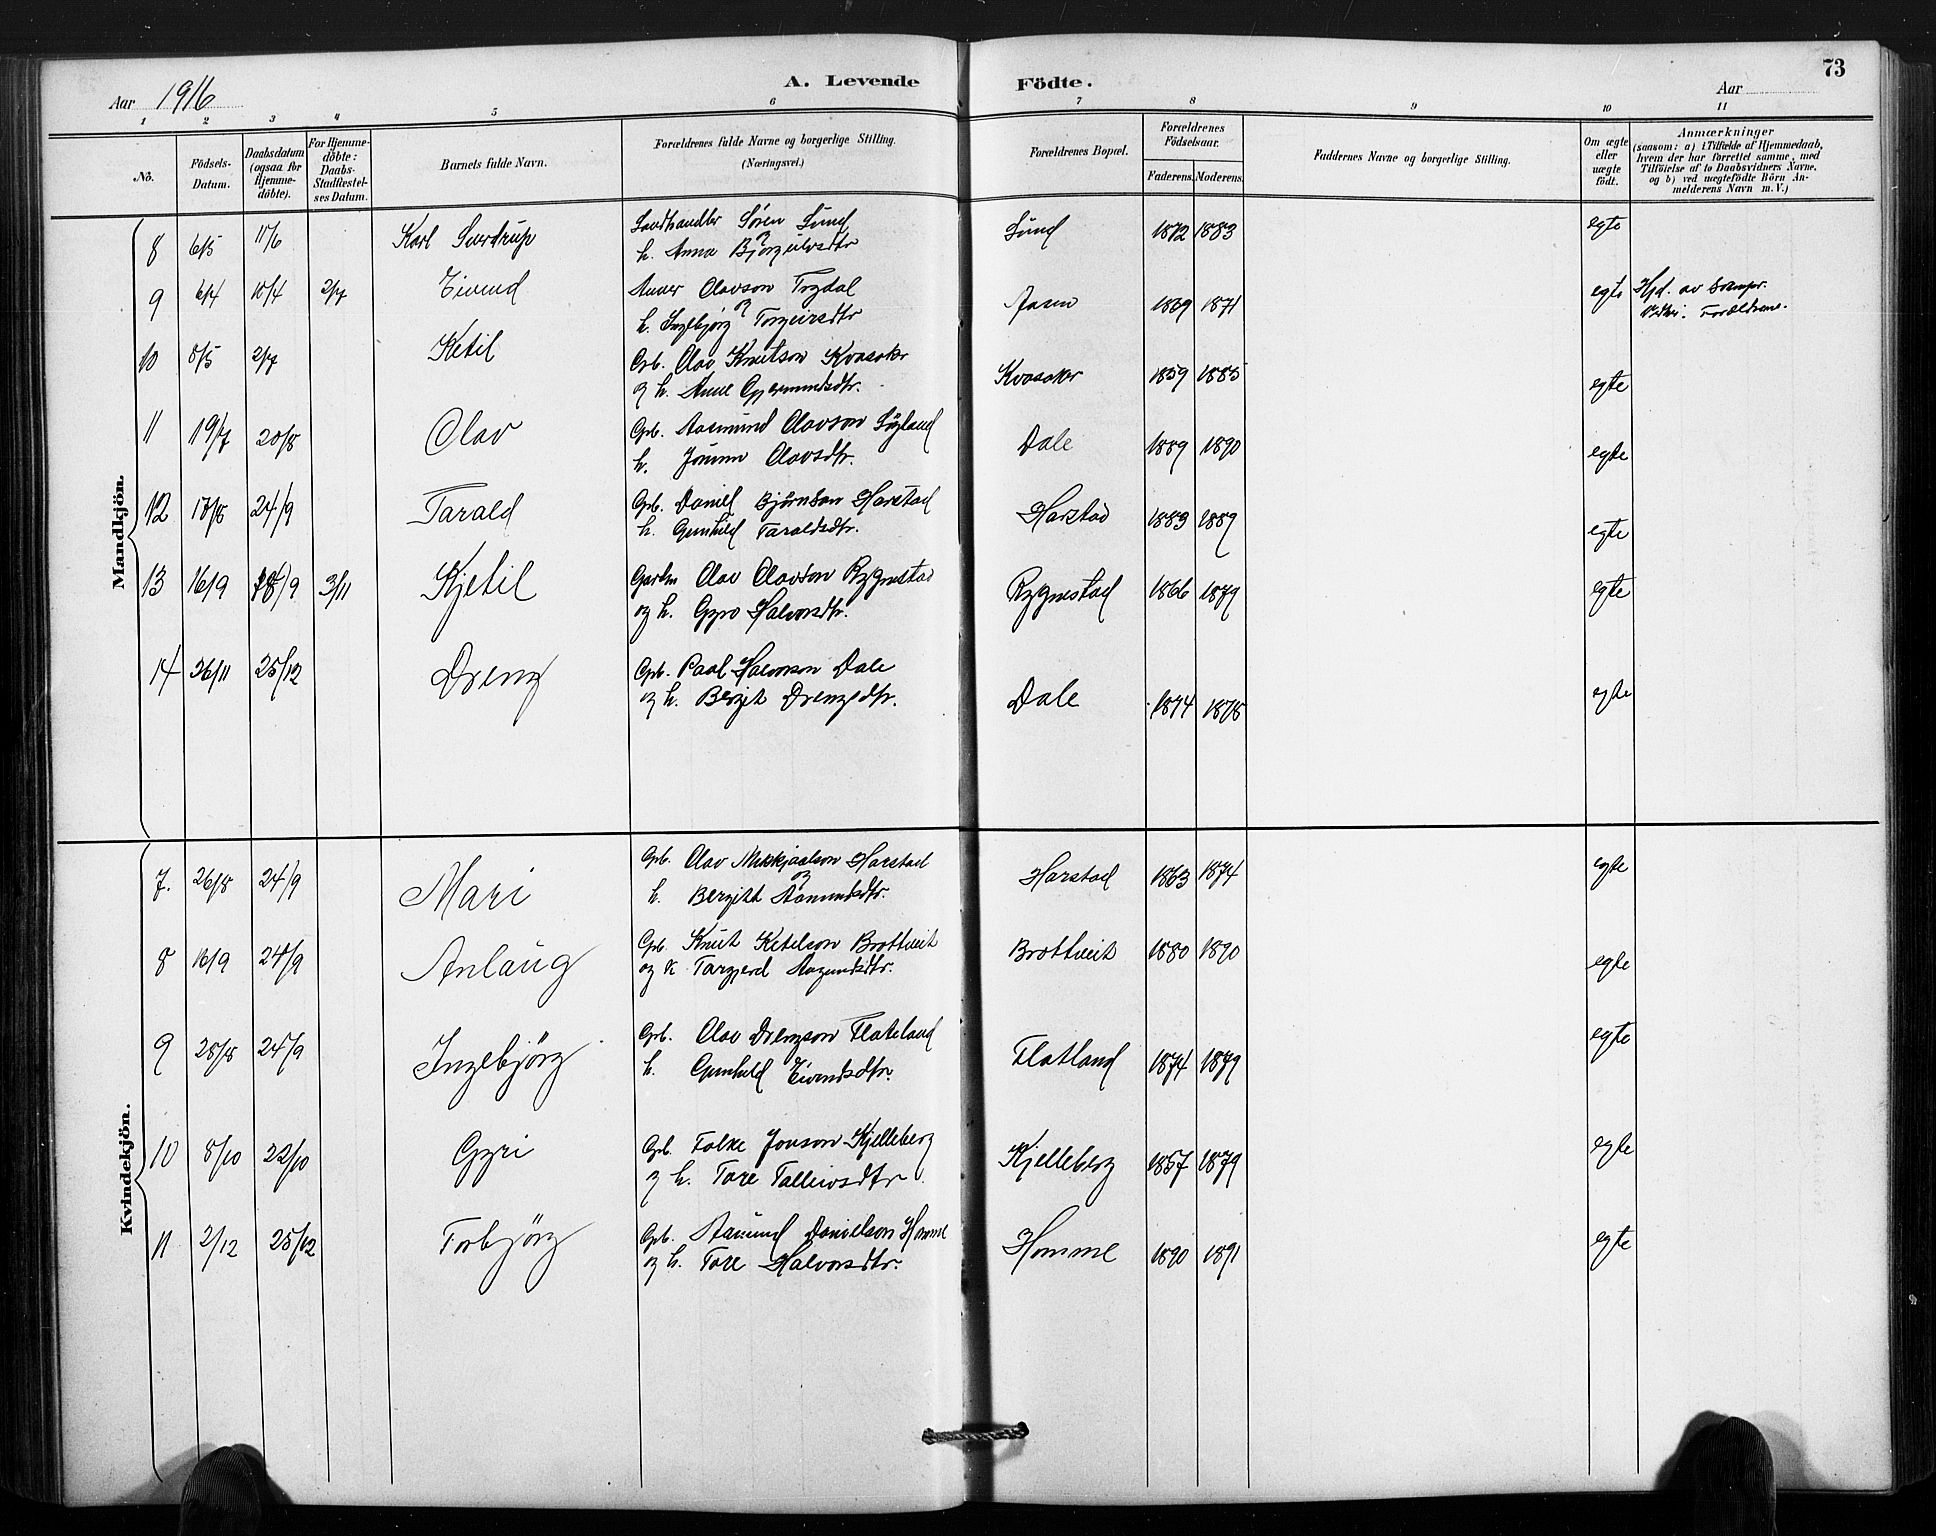 Aar 1916
A. Levende Födte.
73
Aar
1 2 3 4 5 6 7 8 9 10 11
No.
Födsels-Datum.
Daabsdatum (ogsaa for Hjemme-döbte).
For Hjemme-döbte: Daabs-Stadfæstel-ses Datum.
Barnets fulde Navn.
Forældrenes fulde Navne og borgerlige Stilling. (Næringsvei.)
Forældrenes Bopæl.
Forældrenes Födselsaar.
Faderens. Moderens.
Faddernes Navne og borgerlige Stilling.
Om ægte eller uægte födt.
Anmærkninger
(saasom: a) i Tilfælde af Hjemmedaab,
hvem der har forrettet samme, med
Tilföielse af to Daabsvidners Navne,
og b) ved uægtefödte Börn An-
melderens Navn m. V.)
Mandkjön.
8 6/5 11/6 Karl Sverdrup Landhandler Sören Lund Lund 1872 1883 egte
og h. Anna Bjørgulvsdtr
9 6/4 10/4 2/7 Eivind Anver Olavson Trydal Aasen 1869 1871 egte Hjd. av
og h. Ingebjørg Torgeirsdtr Forældrene.
10 8/5 2/7 Ketil Grb. Olav Knutson Kvasaker Kvasaker 1859 1885 egte
og h. Anne Gjermundsdtr.
11 19/7 20/8 Olav Grb. Aasmund Olavson Løyland Dale 1889 1890 egte
h. Jorunn Olavsdtr.
12 17/8 24/9 Tarald Grb. Daniel Bjørnson Harstad Harstad 1883 1889 egte
h. Gunhild Taraldsdtr.
13 16/9 18/9 3/11 Kjetil Gardm Olav Olavson Rygnestad Rygnestad 1866 1879 egte
og h. Gyro Halvorsdtr.
14 26/11 25/12 Dreng Grb. Paal Halvorson Dale Dale 1874 1878 egte
og h. Bergit Drengsdtr.
Kvindekjön.
7. 26/8 24/9 Mari Grb. Olav Mikkjaalson Harstad Harstad 1863 1874 egte
og h. Bergith Aanundsdtr.
8 16/9 24/9 Anlaug Grb. Knut Ketelson Brottveit Brottveit 1880 1890 egte
og h. Targjerd Aasmundsdtr.
9 28/8 24/9 Ingebjörg Grb. Olav Drengson Flateland Flatland 1874 1879 egte
h. Gunhild Eivindsdtr.
10 8/10 22/10 Gyri Grb. Folke Jonson Kjelleberg Kjelleberg 1857 1879 egte
og h. Tore Tallevsdtr
11 2/12 25/12 Torbjörg Grb. Aasmund Danielson Homme Homme 1890 1891 egte
og h. Tore Halvorsdtr.